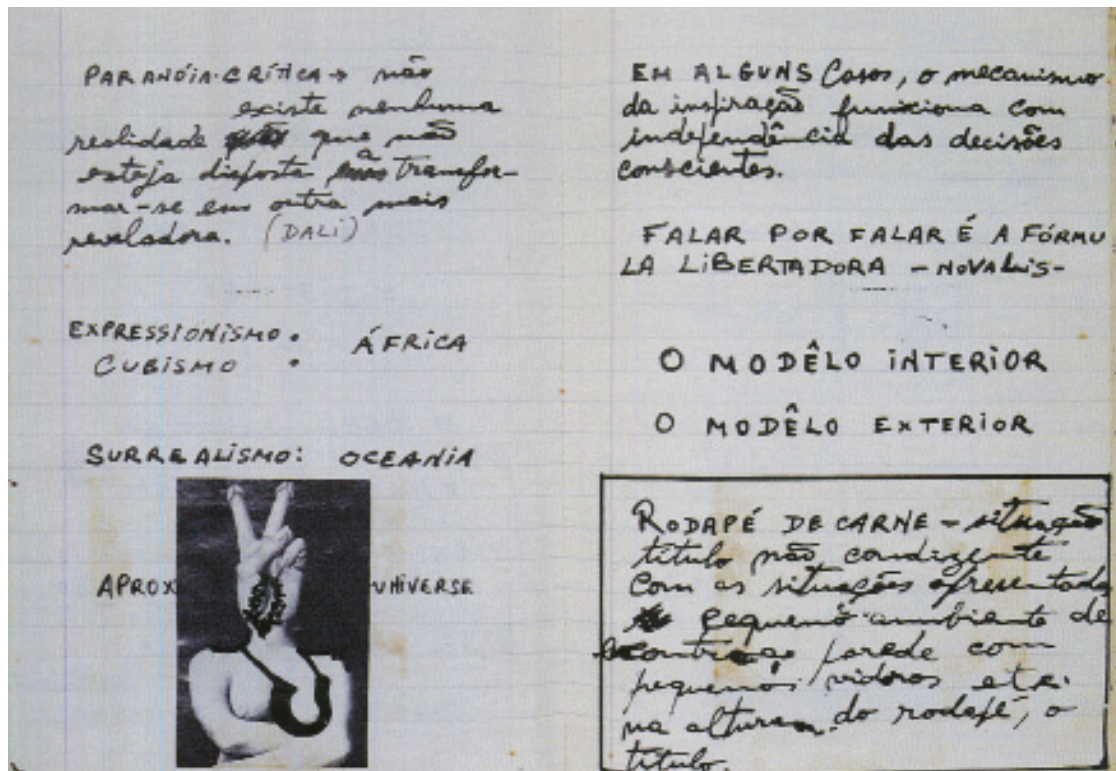 PARANÓIA-CRÍTICA → não
existe nenhuma
realidade que não
esteja disposta a transfor-
mar-se em outra mais
reveladora. (DALI)
EXPRESSIONISMO.
CUBISMO .
ÁFRICA
SURREALISMO: OCEANIA
APROX UNIVERSE
EM ALGUNS Casos, o mecanismo
da inspiração funciona com
independência das decisões
conscientes.
FALAR POR FALAR É A FÓRMU
LA LIBERTADORA - NOVALIS -
O MODÊLO INTERIOR
O MODÊLO EXTERIOR
RODAPÉ DE CARNE - situação
titulo não condizente
com as situações apresentadas
pequeno ambiente de
parede com
pequenos vidros etc.
na altura do rodapé, o
titulo.